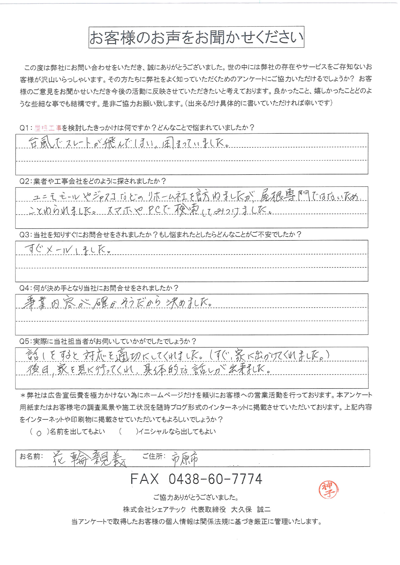 お客様のお声をお聞かせください
この度は弊社にお問い合わせをいただき、誠にありがとうございました。世の中には弊社の存在やサービスをご存知ないお
客様が沢山いらっしゃいます。その方たちに弊社をよく知っていただくためのアンケートにご協力いただけるでしょうか？ お客
様のご意見をお聞かせいただき今後の活動に反映させていただきたいと考えております。良かったこと、嬉しかったことどのよ
うな些細な事でも結構です。是非ご協力お願い致します。（出来るだけ具体的に書いていただければ幸いです）
Q1：屋根工事を検討したきっかけは何ですか？どんなことで悩まれていましたか？
台風でスレートが飛んでしまい、困まっていました。
Q2：業者や工事会社をどのように探されましたか？
ユニモモールやジャスコなどのリホーム社を訪ねましたが、屋根専門ではないため、
ことわられました。スマホやPCで検索してみつけました。
Q3：当社を知りすぐにお問合せをされましたか？もし悩まれたとしたらどんなことがご不安でしたか？
すぐメールしました。
Q4：何が決め手となり当社にお問合せをされましたか？
事業内容が確かそうだから決めました。
Q5：実際に当社担当者がお伺いしていかがでしたでしょうか？
話しをすると対応を適切にしてくれました。（すぐ、家に出かけてくれました。）
後日、家を見に行ってくれ、具体的な話しが出来ました。
＊弊社は広告宣伝費を極力かけない為にホームページだけを頼りにお客様への営業活動を行っております。本アンケート
用紙またはお客様宅の調査風景や施工状況を随時ブログ形式のインターネットに掲載させていただいております。上記内容
をインターネットや印刷物に掲載させていただいてもよろしいでしょうか？
（ o ）名前を出してもよい （ ）イニシャルなら出してもよい
お名前： 花輪親義 ご住所： 市原市
FAX 0438-60-7774
ご協力ありがとうございました。
株式会社シェアテック 代表取締役 大久保 誠二
当アンケートで取得したお客様の個人情報は関係法規に基づき厳正に管理いたします。